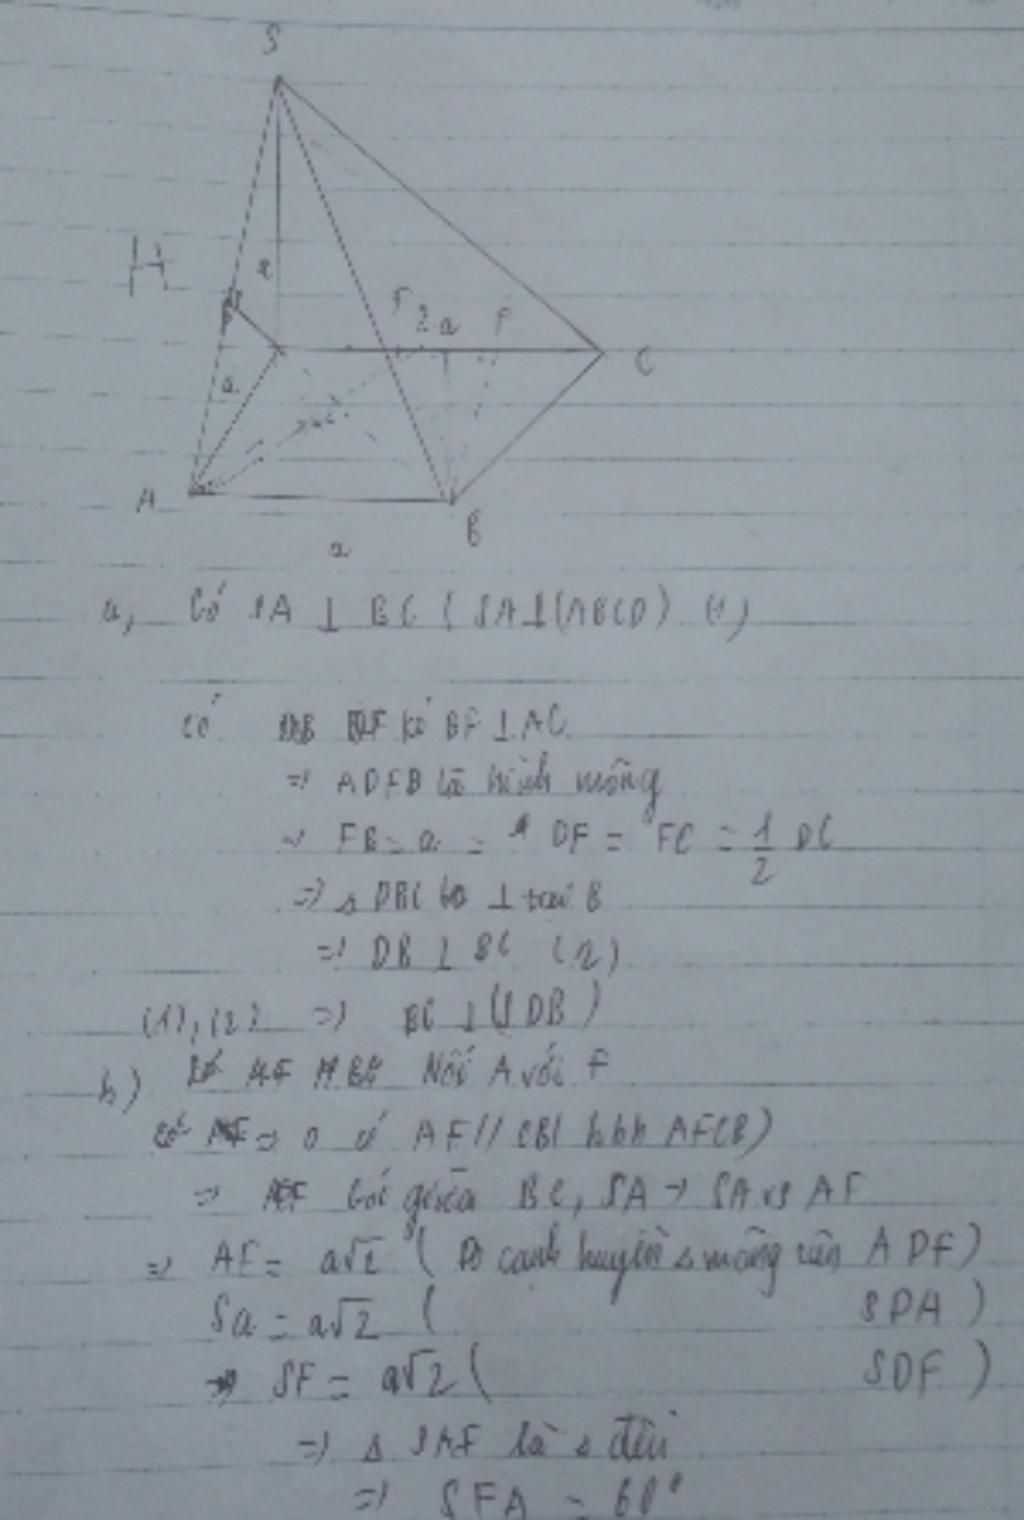 S
H
a
F 2a F
C
a
A
B
a
a, Có SA ⊥ BC ( SA⊥(ABCD) (1)
Có kẻ BF ⊥ AC
=> ADFB là hình vuông
=> FB = a = DF = FC = 1/2 DC
=> Δ DBC ⊥ tại B
=> DB ⊥ BC (2)
(1), (2) => BC ⊥ (SDB)
b) Nối A với F
có AF // CB( hbh AFCB)
=> góc giữa BC, SA → SA vs AF
=> AF = a√2 ( Do cạnh huyền Δ vuông cân ADF)
Sa = a√2 ( SDA )
=> SF = a√2 ( SDF )
=> Δ SAF là Δ đều
=> SFA = 60°